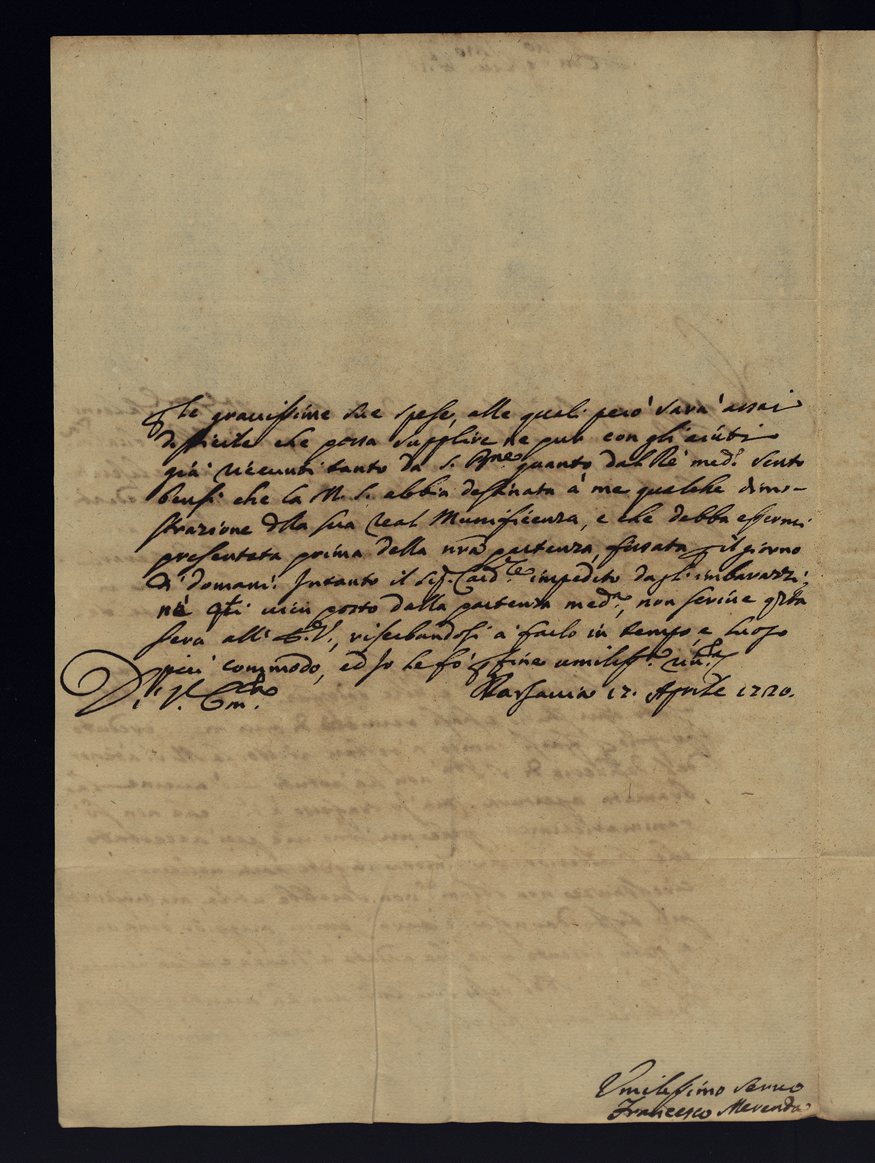 le gravissime sue spese, alle quali però sarà assai
difficile che possa supplire ne pur con gli aiuti
già ricevuti tanto da S. Bne quanto dal Rè medo. Sento
bensì che la M. S. abbia destinata à me qualche dimo-
strazione della sua real Munificenza, e che debba essermi
presentata prima della nra partenza, fissata il giorno
di domani. Intanto il Sigr Cardle impedito dagl' imbarazzi,
nè qti vicin posto dalla partenza meda, non scrive qsta
sera all' E.V., riserbandosi à farlo in tempo, e luogo
più commodo, ed Io le fò fine umilissa rivza
Di V. Emza Varsavia 17. Aprile 1720.
Umilissimo Servo
Francesco Merenda